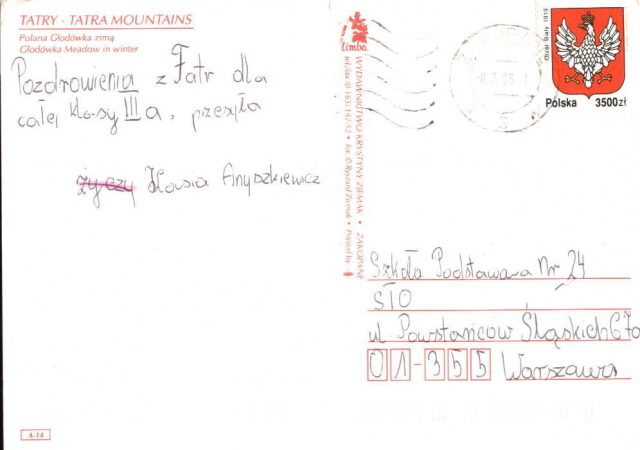 TATRY - TATRA MOUNTAINS
Polana Głodówka zimą
Głodówka Meadow in winter
Pozdrowienia z Tatr dla
całej klasy III a, przesyła
życzy Kasia Anyszkiewicz
A-14
limba
WYDAWNICTWO KRYSTYNY ZIEMAK • ZAKOPANE
fot. © Ryszard Ziemak • Printed by
Orzeł Biały 1919
Polska 3500zł
Szkoła Podstawowa Nr 24
STO
ul Powstańców Śląskich
01-355 Warszawa